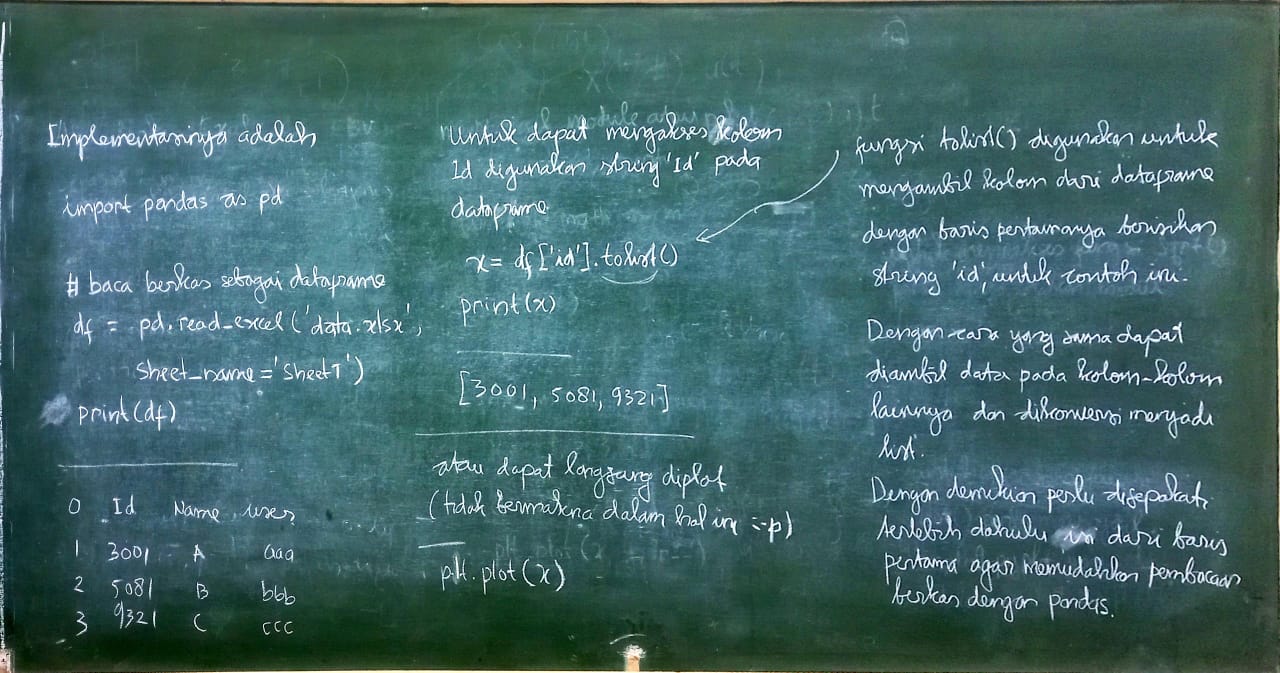 Implementasinya adalah
import pandas as pd
# baca berkas sebagai dataframe
df = pd.read_excel('data.xlsx',
sheet_name='sheet1')
print(df)
0 Id Name user
1 3001 A aaa
2 5081 B bbb
3 9321 C ccc
Untuk dapat mengakses kolom
Id digunakan string 'Id' pada
dataframe
x = df['id'].tolist()
print(x)
[3001, 5081, 9321]
atau dapat langsung diplot
(tidak bermakna dalam hal ini :-p)
plt.plot(x)
fungsi tolist() digunakan untuk
mengambil kolom dari dataframe
dengan baris pertamanya berisikan
string 'id', untuk contoh ini.
Dengan cara yang sama dapat
diambil data pada kolom-kolom
lainnya dan dikonversi menjadi
list.
Dengan demikian perlu disepakati
terlebih dahulu isi dari baris
pertama agar memudahkan pembacaan
berkas dengan pandas.